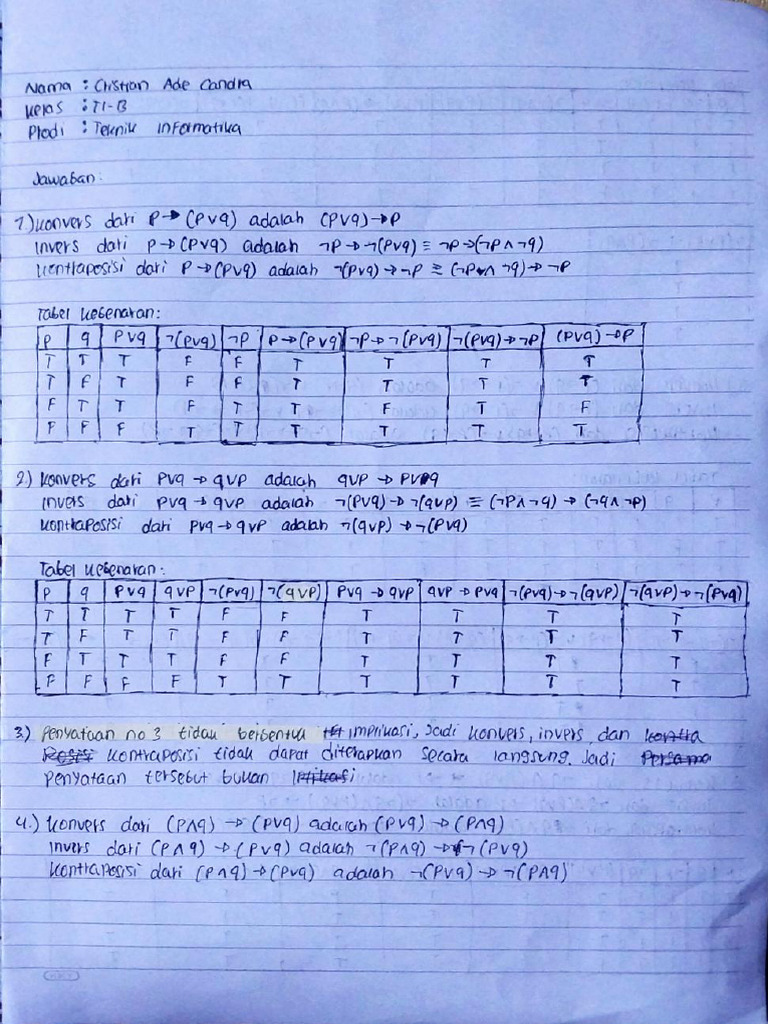 Nama : Cristian Ade Candra
Kelas : TI-B
Prodi : Teknik Informatika
Jawaban:
1.) Konvers dari P → (P∨q) adalah (P∨q) → P
Invers dari P → (P∨q) adalah ¬P → ¬(P∨q) ≡ ¬P → (¬P ∧ ¬q)
Kontraposisi dari P → (P∨q) adalah ¬(P∨q) → ¬P ≡ (¬P ∧ ¬q) → ¬P
Tabel kebenaran:
P q P∨q ¬(P∨q) ¬P P → (P∨q) ¬P → ¬(P∨q) ¬(P∨q) → ¬P (P∨q) → P
T T T F F T T T T
T F T F F T T T T
F T T F T T F T F
F F F T T T T T T
2.) Konvers dari P∨q → q∨P adalah q∨P → P∨q
Invers dari P∨q → q∨P adalah ¬(P∨q) → ¬(q∨P) ≡ (¬P ∧ ¬q) → (¬q ∧ ¬P)
Kontraposisi dari P∨q → q∨P adalah ¬(q∨P) → ¬(P∨q)
Tabel kebenaran:
P q P∨q q∨P ¬(P∨q) ¬(q∨P) P∨q → q∨P q∨P → P∨q ¬(P∨q) → ¬(q∨P) ¬(q∨P) → ¬(P∨q)
T T T T F F T T T T
T F T T F F T T T T
F T T T F F T T T T
F F F F T T T T T T
3.) Penyataan no 3 tidak berbentuk implikasi, Jadi konvers, invers, dan kontra
Kontraposisi tidak dapat diterapkan secara langsung. Jadi
Penyataan tersebut bukan
4.) Konvers dari (P∧q) → (P∨q) adalah (P∨q) → (P∧q)
Invers dari (P∧q) → (P∨q) adalah ¬(P∧q) → ¬(P∨q)
Kontraposisi dari (P∧q) → (P∨q) adalah ¬(P∨q) → ¬(P∧q)